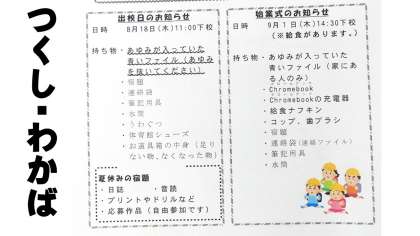 つくし・わかば
出校日のお知らせ
日時 8月18日(木)11:00下校
持ち物・あゆみが入っていた
青いファイル(あゆみ
を抜いてください)
・宿題
・連絡袋
・筆記用具
・水筒
・うわぐつ
・体育館シューズ
・お道具箱の中身(足り
ない物、なくなった物)
夏休みの宿題
・日誌 ・音読
・プリントやドリルなど
・応募作品(自由参加です)
始業式のお知らせ
日時 9月1日(木)14:30下校
(※給食があります。)
持ち物・あゆみが入っていた
青いファイル(家にあ
る人のみ)
・Chromebook
・Chromebookの充電器
・給食ナフキン
・コップ、歯ブラシ
・宿題
・連絡袋(連絡ファイル)
・筆記用具
・水筒